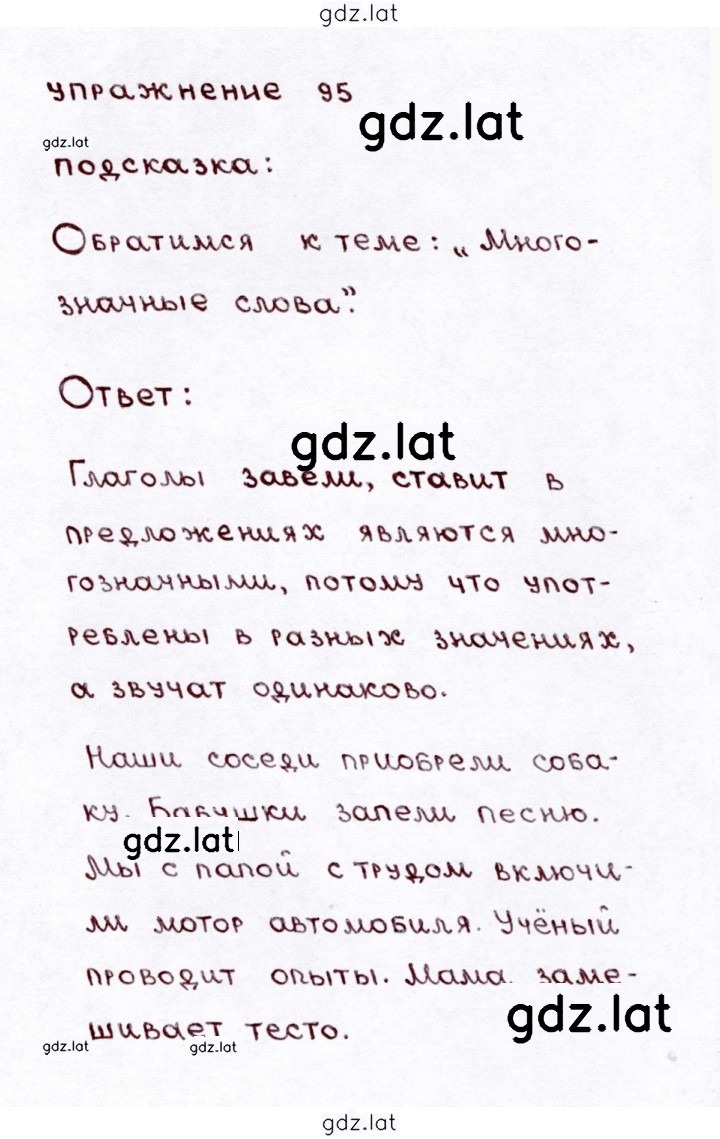 gdz.lat
упражнение 95
gdz.lat
gdz.lat
подсказка:
Обратимся к теме: „Много-
значные слова”.
Ответ:
gdz.lat
Глаголы завели, ставит в
предложениях являются мно-
гозначными, потому что упот-
реблены в разных значениях,
а звучат одинаково.
Наши соседи приобрели соба-
ку. Бабушки запели песню.
gdz.lat
Мы с папой с трудом включи-
ли мотор автомобиля. Учёный
проводит опыты. Мама заме-
gdz.lat
шивает тесто.
gdz.lat gdz.lat
gdz.lat